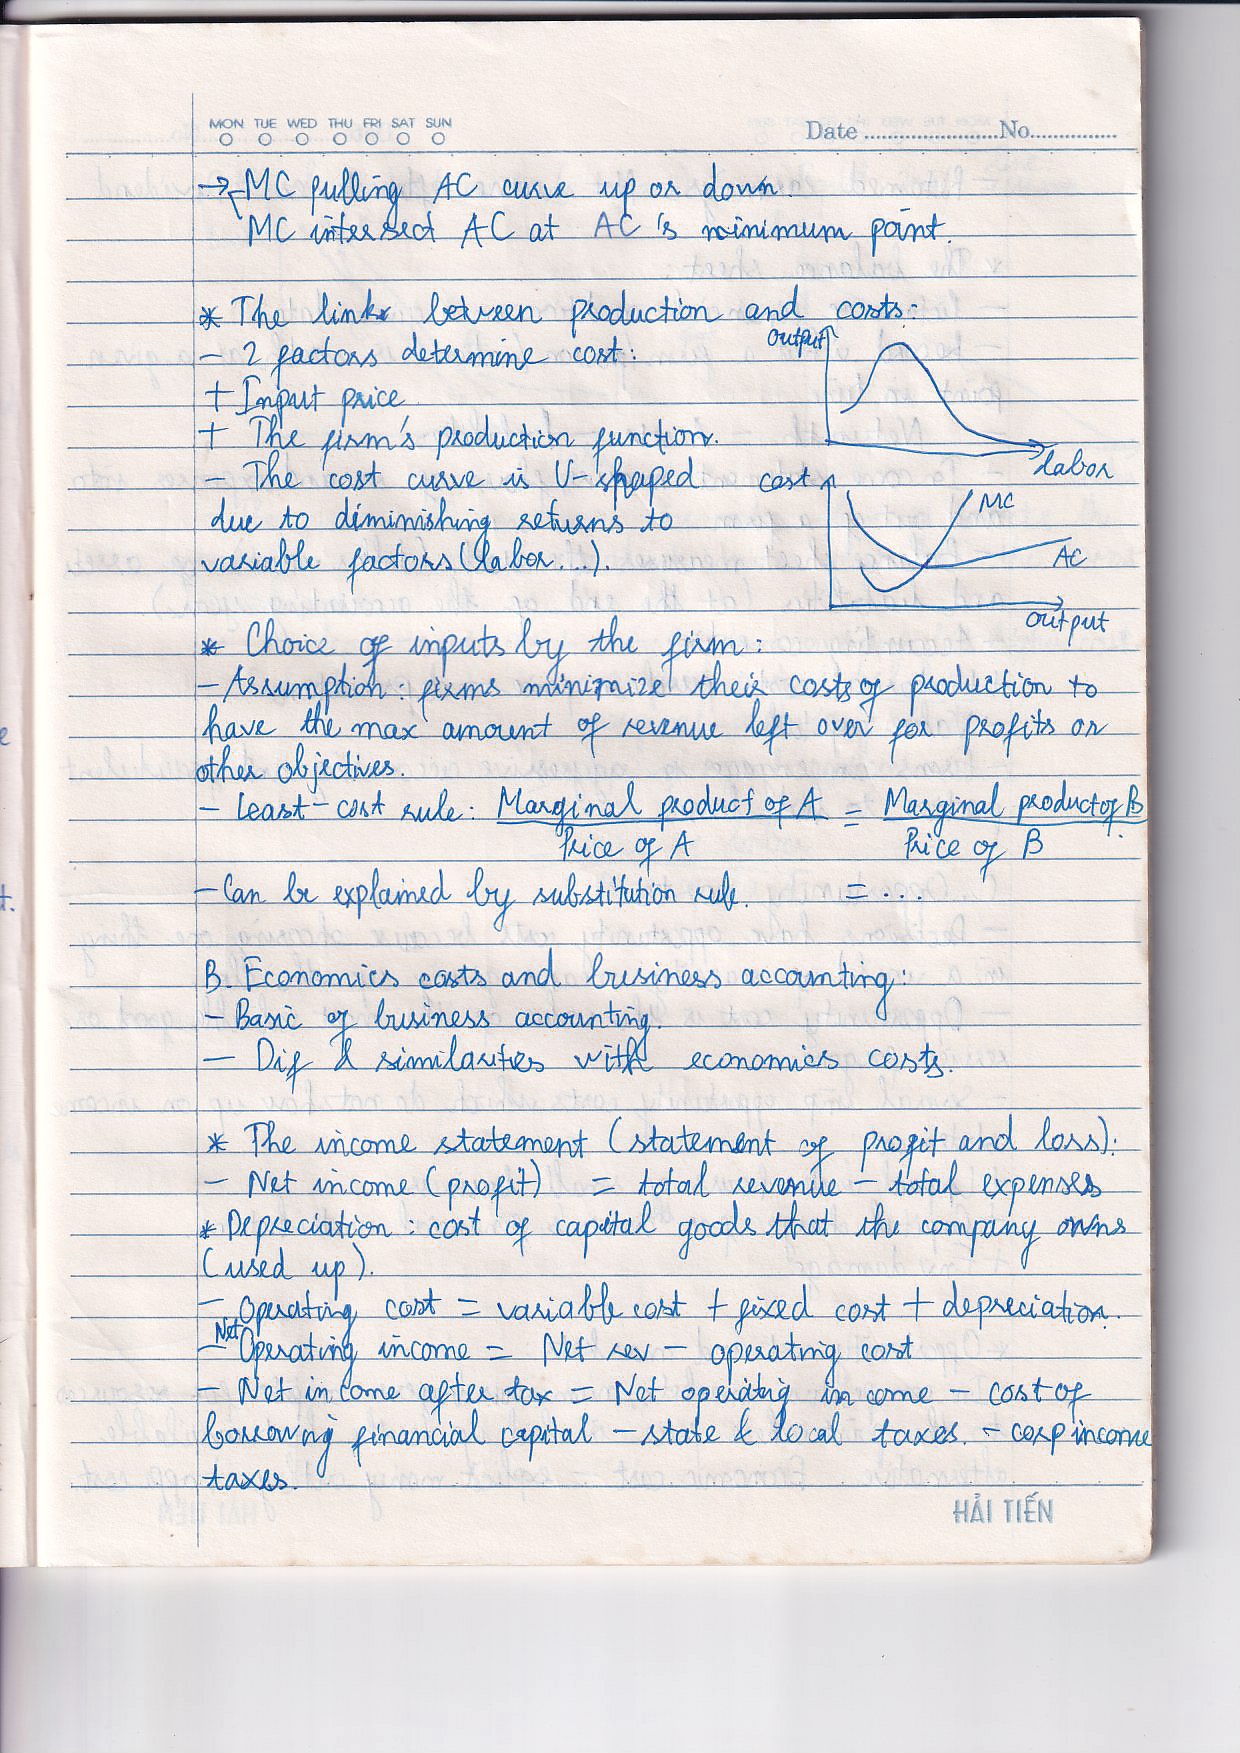 MON TUE WED THU FRI SAT SUN
Date ........................No...............
→ - MC pulling AC curve up or down.
MC intersect AC at AC's minimum point.
* The link between production and costs:
- 2 factors determine cost:
+ Input price
+ The firm's production function.
- The cost curve is U-shaped
due to diminishing returns to
variable factors (labor...).
output
labor
cost
MC
AC
output
* Choice of inputs by the firm:
- Assumption: firms minimize their costs of production to
have the max amount of revenue left over for profits or
other objectives.
- Least-cost rule: Marginal product of A = Marginal product of B
Price of A Price of B
- Can be explained by substitution rule. = ...
B. Economics costs and business accounting:
- Basic of business accounting.
- Dif & similarities with economics costs.
* The income statement (statement of profit and loss):
- Net income (profit) = total revenue - total expenses
* Depreciation: cost of capital goods that the company owns
(used up).
- Operating cost = variable cost + fixed cost + depreciation.
- Net Operating income = Net rev - operating cost
- Net income after tax = Net operating income - cost of
borrowing financial capital - state & local taxes. - corp income
taxes.
HẢI TIẾN
e
t.